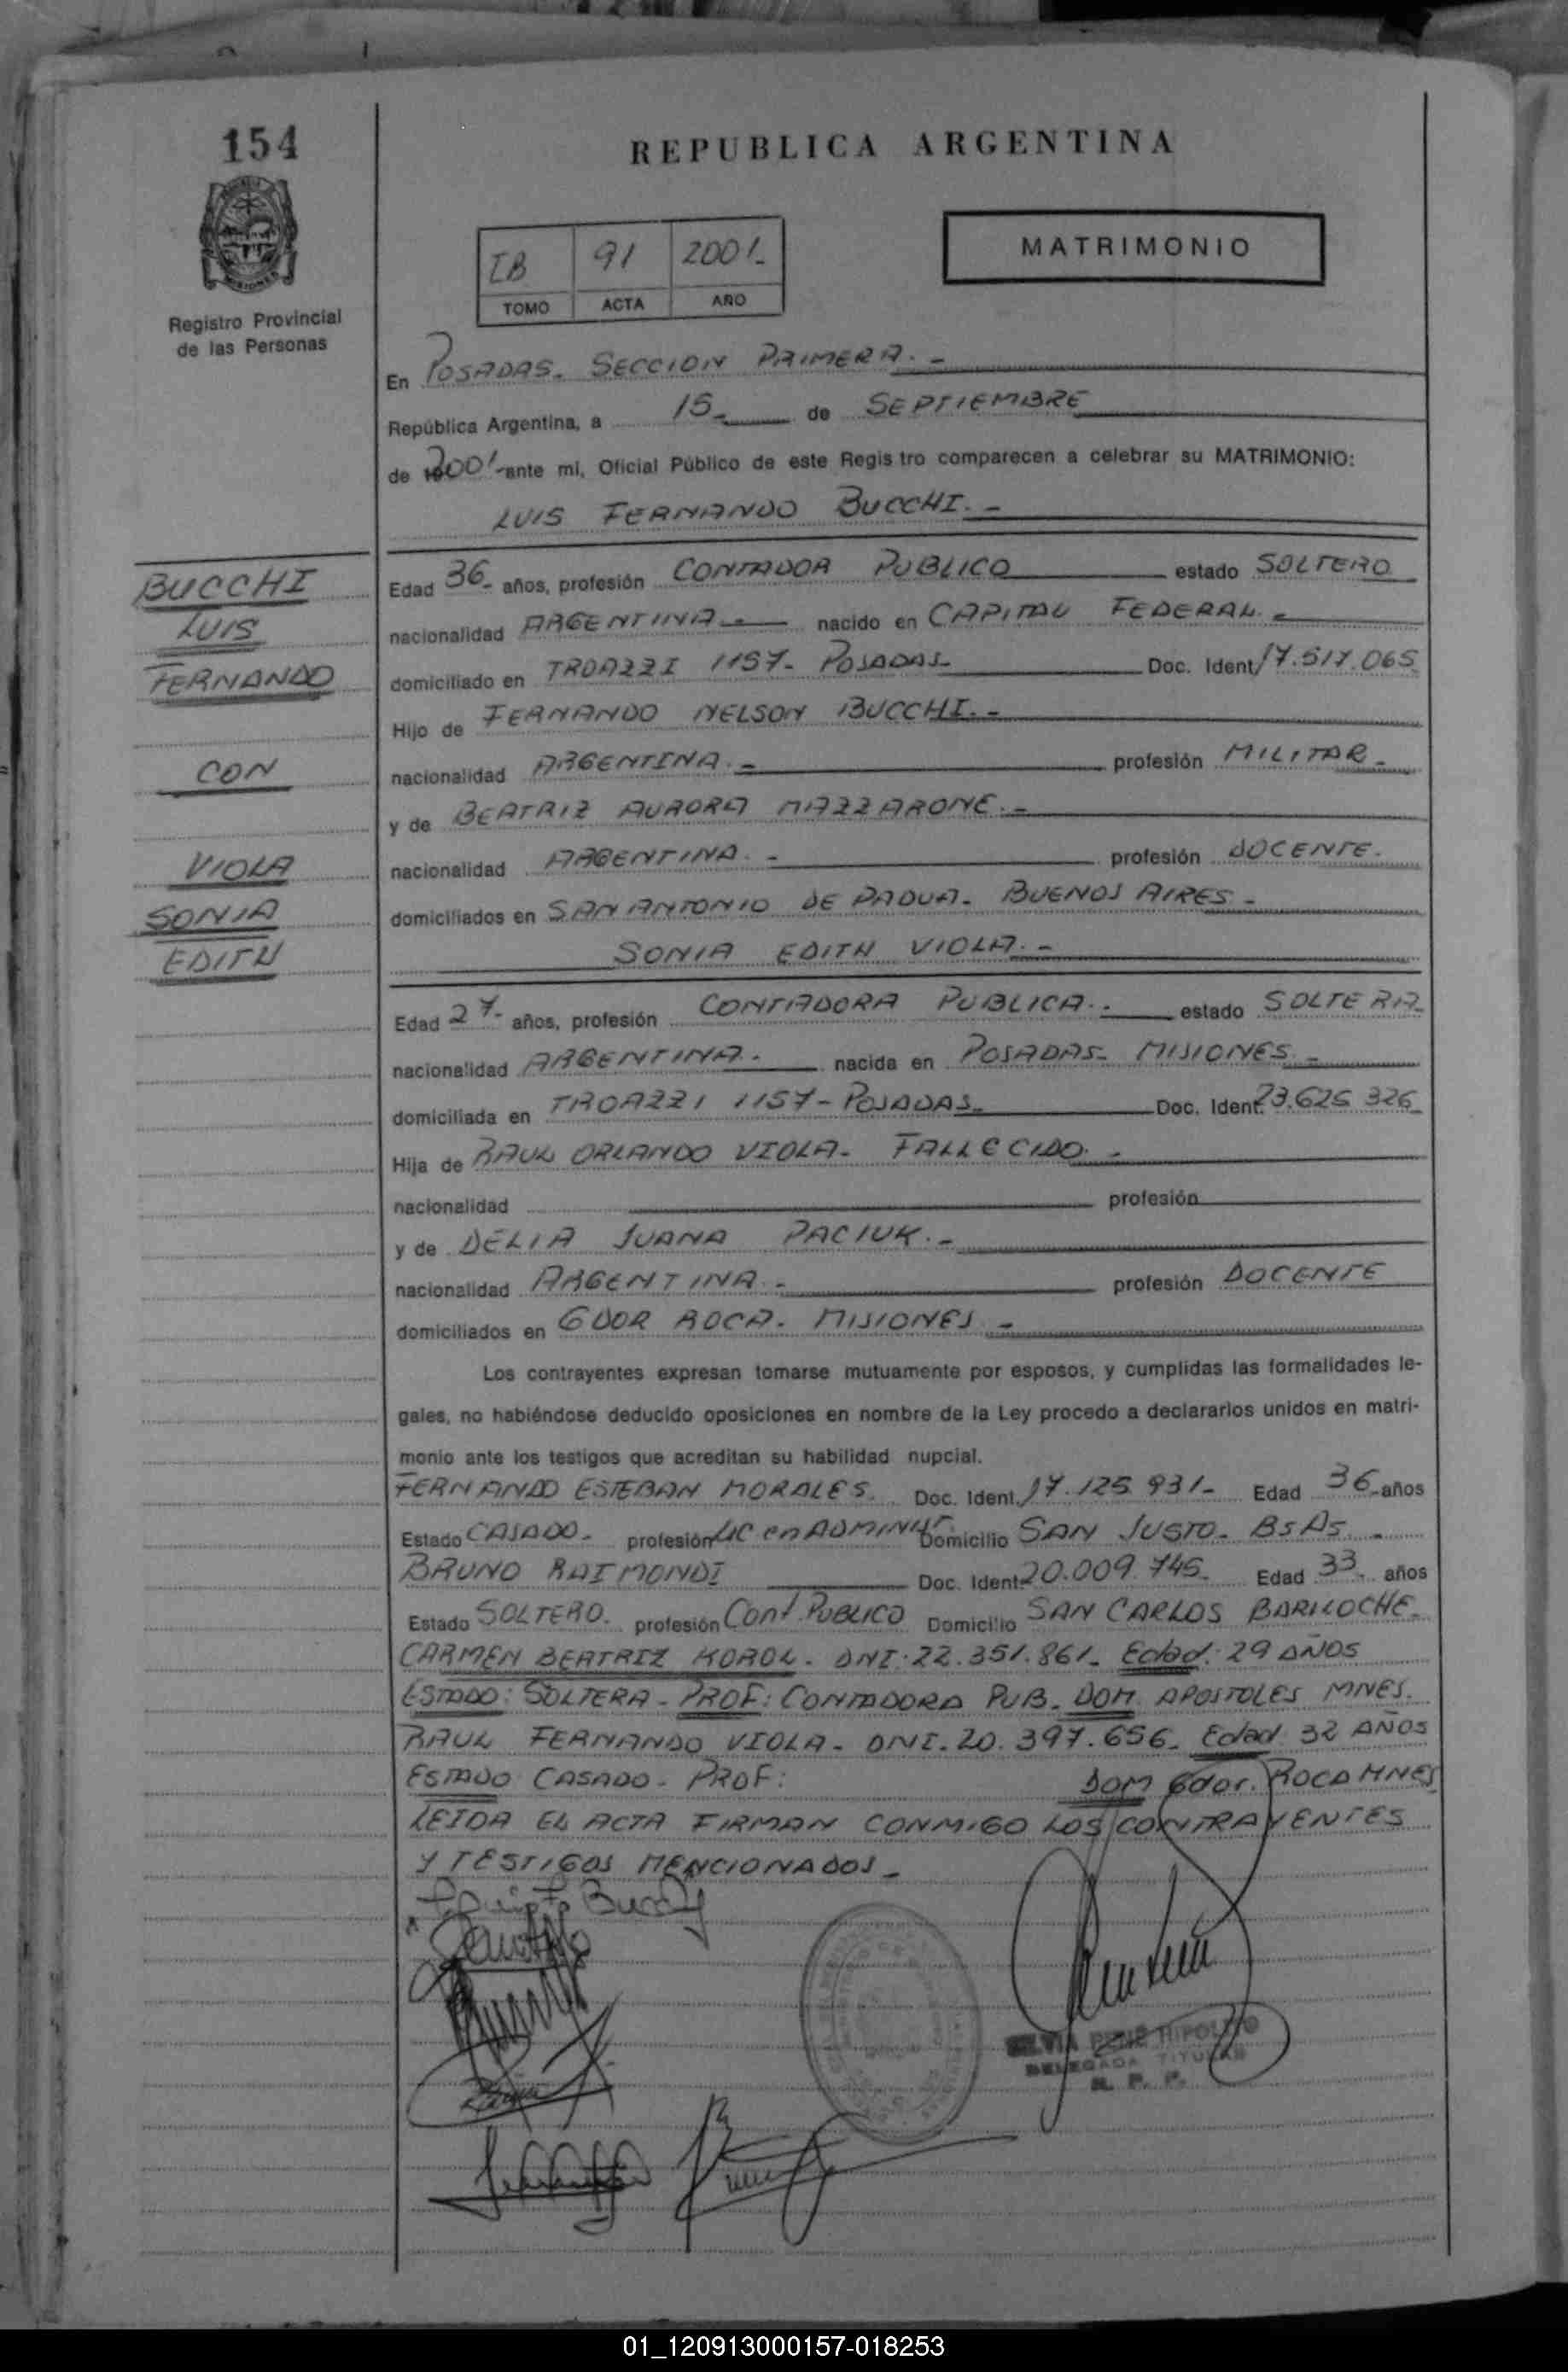 154
REPUBLICA ARGENTINA
MISIONES
Registro Provincial
de las Personas
IB 91 2001-
TOMO ACTA AÑO
MATRIMONIO
En POSADAS. SECCION PRIMERA.-
República Argentina, a 15- de SEPTIEMBRE
de 2001-ante mi, Oficial Público de este Regis tro comparecen a celebrar su MATRIMONIO:
LUIS FERNANDO BUCCHI.-
BUCCHI
LUIS
FERNANDO
CON
VIOLA
SONIA
EDITH
Edad 36- años, profesión CONTADOR PUBLICO estado SOLTERO
nacionalidad ARGENTINA- nacido en CAPITAL FEDERAL.-
domiciliado en TROAZZI 1157- POSADAS- Doc. Ident. 17.517.065
Hijo de FERNANDO NELSON BUCCHI.-
nacionalidad ARGENTINA.- profesión MILITAR-
y de BEATRIZ AURORA MAZZARONE.-
nacionalidad ARGENTINA.- profesión DOCENTE.
domiciliados en SAN ANTONIO DE PADUA- BUENOS AIRES-
SONIA EDITH VIOLA.-
Edad 27- años, profesión CONTADORA PUBLICA.- estado SOLTERA-
nacionalidad ARGENTINA. nacida en POSADAS- MISIONES-
domiciliada en TROAZZI 1157- POSADAS- Doc. Ident. 23.625 326
Hija de RAUL ORLANDO VIOLA- FALLECIDO.-
nacionalidad profesión
y de DELIA JUANA PACIUK.-
nacionalidad ARGENTINA.- profesión DOCENTE
domiciliados en GDOR ROCA. MISIONES-
Los contrayentes expresan tomarse mutuamente por esposos, y cumplidas las formalidades le-
gales, no habiéndose deducido oposiciones en nombre de la Ley procedo a declararlos unidos en matri-
monio ante los testigos que acreditan su habilidad nupcial.
FERNANDO ESTEBAN MORALES. Doc. Ident. 17.125.931- Edad 36-años
Estado CASADO- profesión LIC en ADMINIST. Domicilio SAN JUSTO- BS AS-
BRUNO RAIMONDI Doc. Ident. 20.009.745- Edad 33- años
Estado SOLTERO. profesión Cont. PUBLICO Domicilio SAN CARLOS BARILOCHE-
CARMEN BEATRIZ KOROL- DNI: 22.351.861- Edad: 29 AÑOS
ESTADO: SOLTERA- PROF: CONTADORA PUB- DOM. APOSTOLES MNES.
RAUL FERNANDO VIOLA- DNI- 20.397.656- Edad 32 AÑOS
ESTADO CASADO- PROF: DOM Gdor. ROCA MNES
LEIDA EL ACTA FIRMAN CONMIGO LOS CONTRAYENTES
Y TESTIGOS MENCIONADOS-
SILVIA RENE HIPOLITO
DELEGADA TITULAR
R. P. P.
01_120913000157-018253